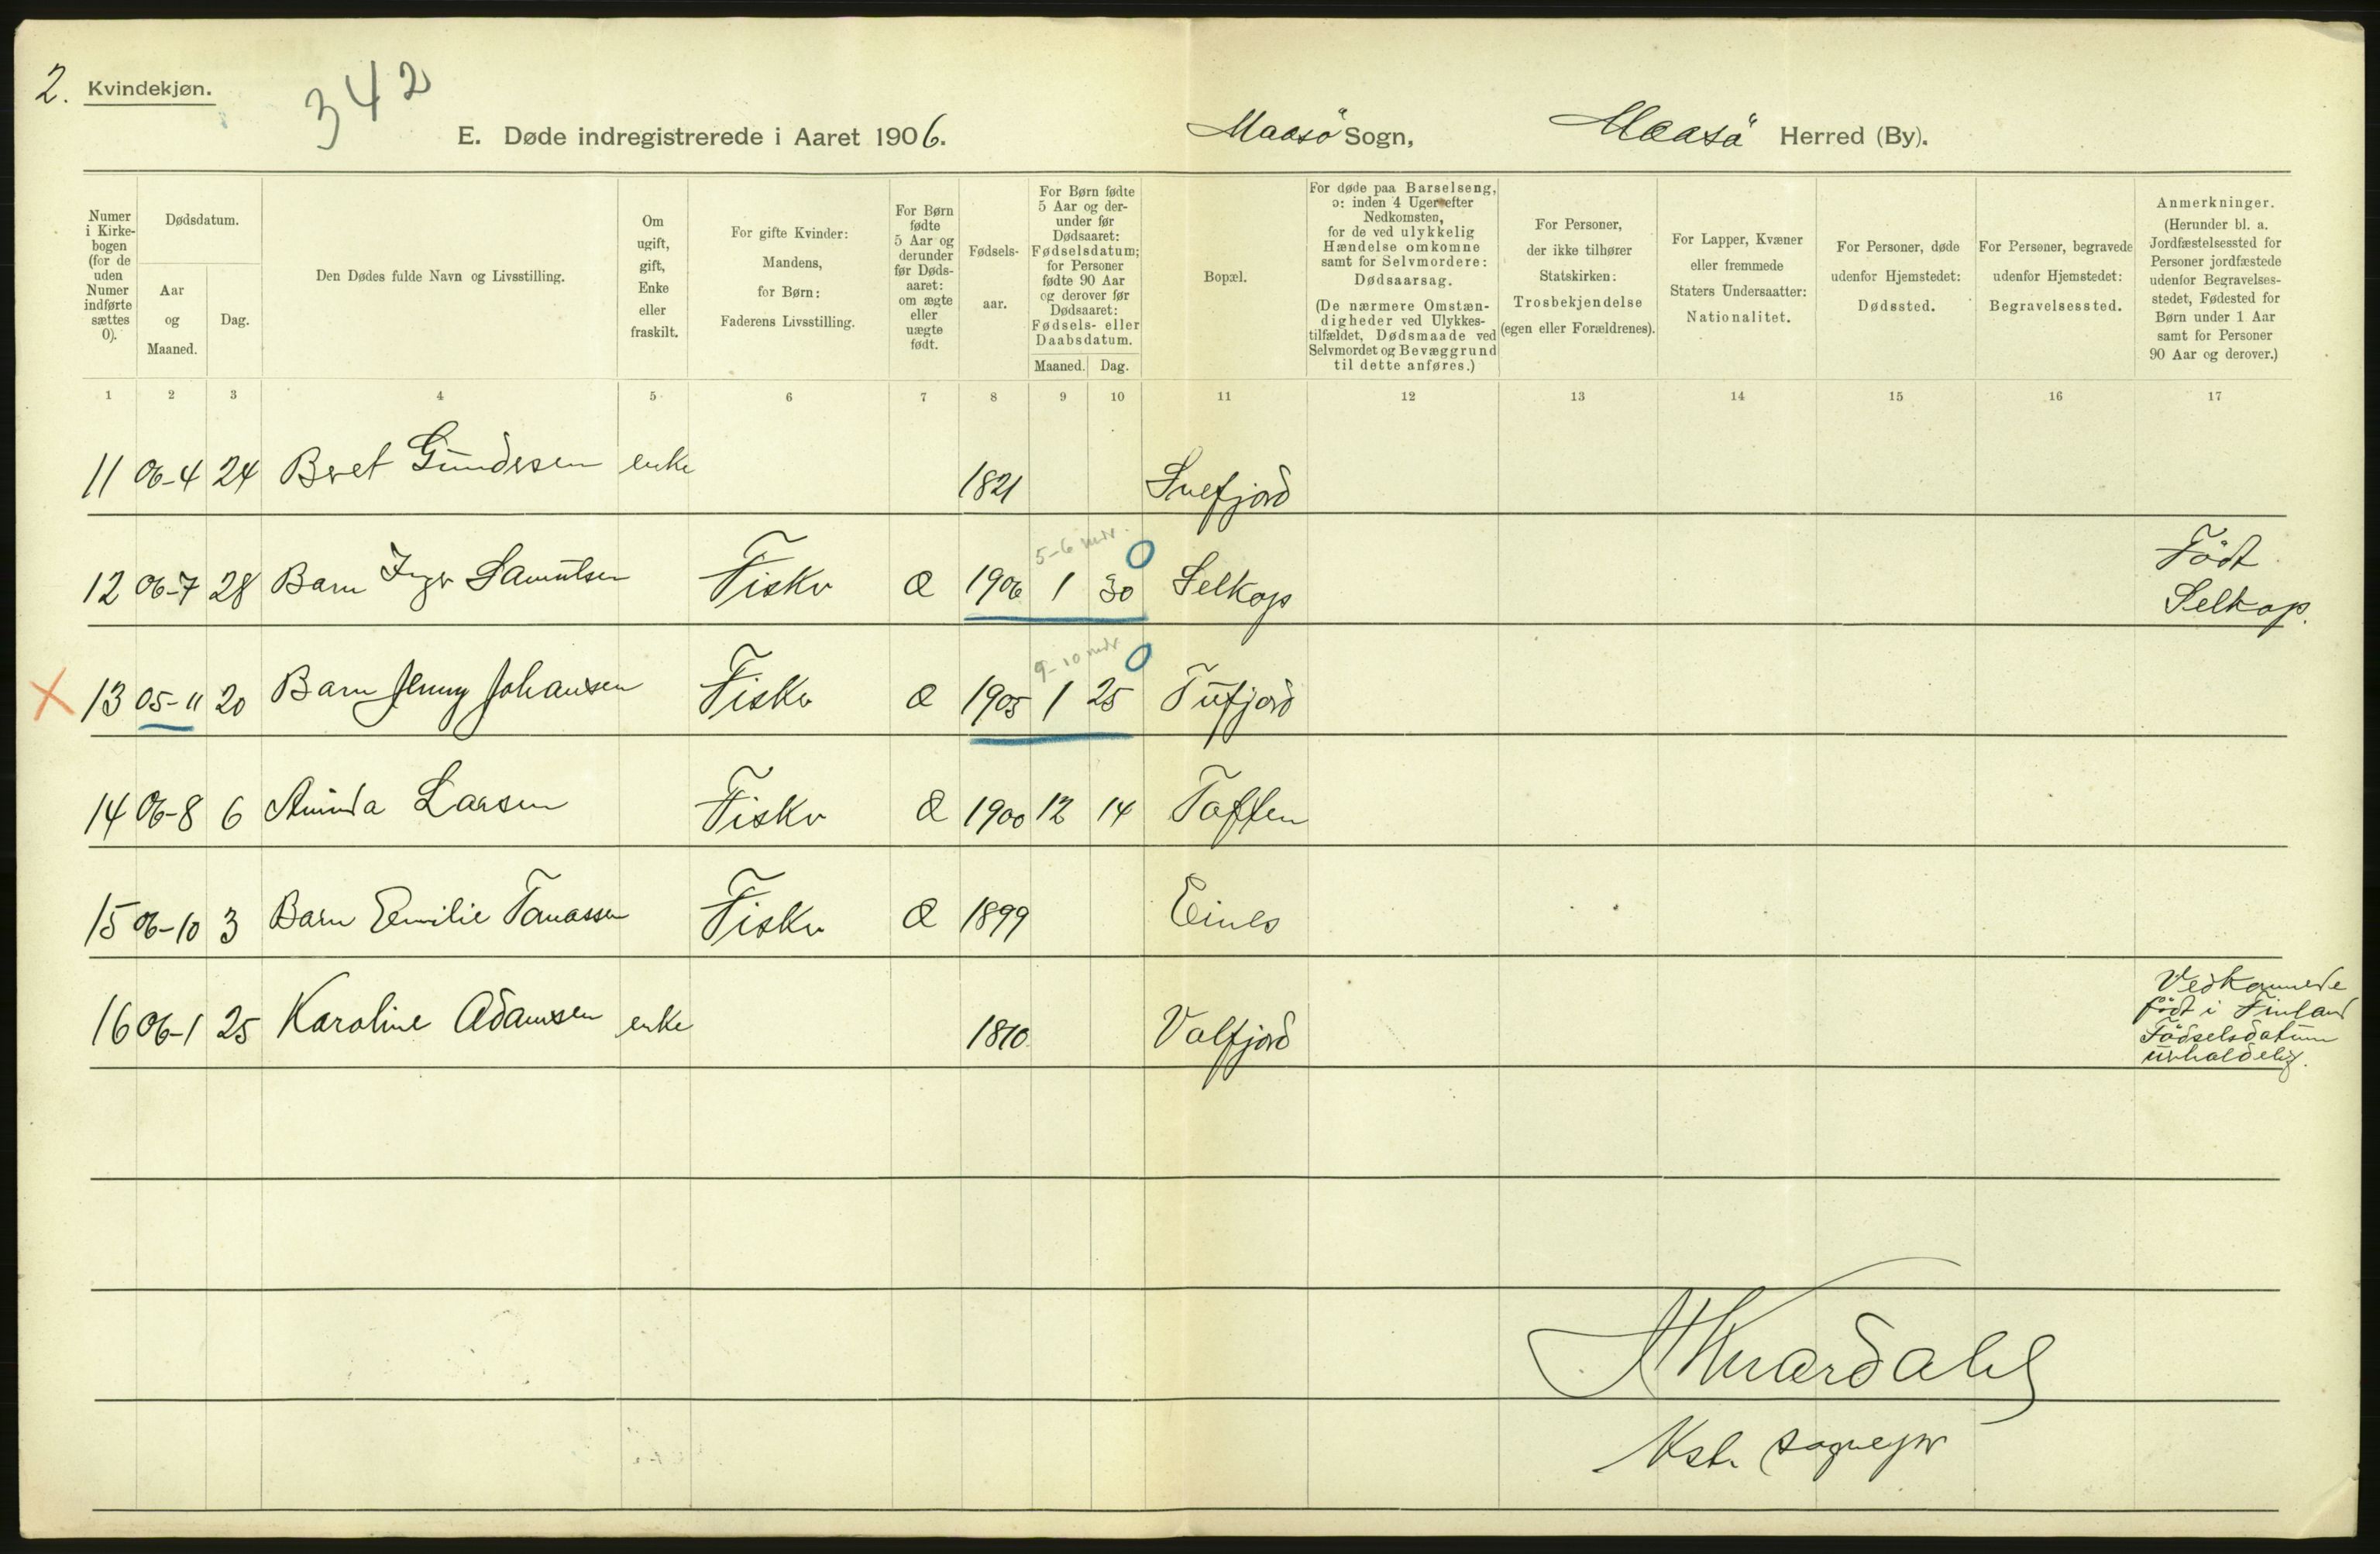 2. Kvindekjøn.
342
E. Døde indregistrerede i Aaret 1906. Maasö Sogn, Maasö Herred (By).
Numer i Kirke-bogen (for de uden Numer indførte sættes 0).
Dødsdatum.
Aar og Maaned.
Dag.
Den Dødes fulde Navn og Livsstilling.
Om ugift, gift, Enke eller fraskilt.
For gifte Kvinder: Mandens, for Børn: Faderens Livsstilling.
For Børn fødte 5 Aar og derunder før Døds-aaret: om ægte eller uægte født.
Fødsels-aar.
For Børn fødte 5 Aar og der-under før Dødsaaret: Fødselsdatum; for Personer fødte 90 Aar og derover før Dødsaaret: Fødsels- eller Daabsdatum.
Maaned. Dag.
Bopæl.
For døde paa Barselseng, ɔ: inden 4 Uger efter Nedkomsten, for de ved ulykkelig Hændelse omkomne samt for Selvmordere: Dødsaarsag.
(De nærmere Omstæn-digheder ved Ulykkes-tilfældet, Dødsmaade ved Selvmordet og Bevæggrund til dette anføres.)
For Personer, der ikke tilhører Statskirken: Trosbekjendelse (egen eller Forældrenes).
For Lapper, Kvæner eller fremmede Staters Undersaatter: Nationalitet.
For Personer, døde udenfor Hjemstedet: Dødssted.
For Personer, begravede udenfor Hjemstedet: Begravelsessted.
Anmerkninger. (Herunder bl. a. Jordfæstelsessted for Personer jordfæstede udenfor Begravelses-stedet, Fødested for Børn under 1 Aar samt for Personer 90 Aar og derover.)
1 2 3 4 5 6 7 8 9 10 11 12 13 14 15 16 17
11 06-4 24 Beret Gundersen enke 1821 Snefjord
5-6 mdr. 0
12 06-7 28 Barn Inger Samulsen Fisker Æ 1906 1 30 Selkop Födt Selkop.
9-10 mdr 0
X 13 05-11 20 Barn Jenny Johansen Fisker Æ 1905 1 25 Tufjord
14 06-8 6 Aminda Larsen Fisker Æ 1900 12 14 Toffen
15 06-10 3 Barn Emilie Tomassen Fisker Æ 1899 Eines
16 06-1 25 Karoline Adamsen enke 1810 Valfjord Vedkommende
födt i Finland
Födselsdatum
uerholdelig.
Kst. sognepr